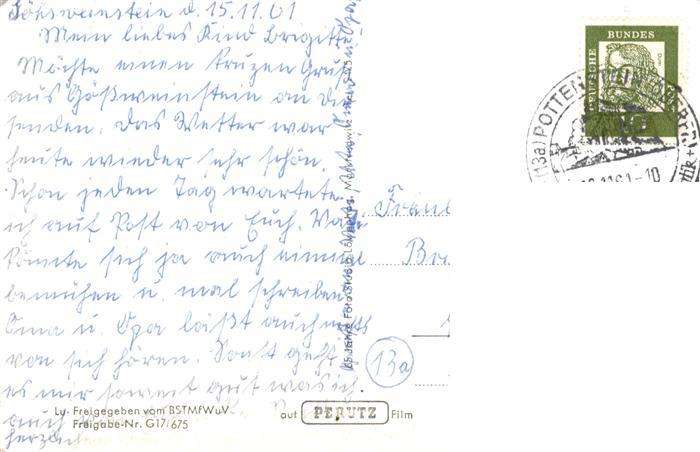 Gößweinstein d. 15.11.61
Mein liebes Kind Brigitte
Möchte einen kurzen Gruß
aus Gößweinstein an Di
senden. Das Wetter war
heute wieder sehr schön.
Schon jeden Tag wartete
ich auf Post von Euch. Vati
könnte sich ja auch einmal
bemühen u. mal schreiben.
Oma u. Opa laßt auch nichts
von sich hören. Sonst geht
es mir soweit gut was ich
auch
herzlich
u. Opa
Lu. Freigegeben vom BSTMfWuV
Freigabe-Nr. G17/675
auf PERUTZ Film
Fräul
Br
13a
DEUTSCHE BUNDESPOST
(13a) POTTENSTEIN